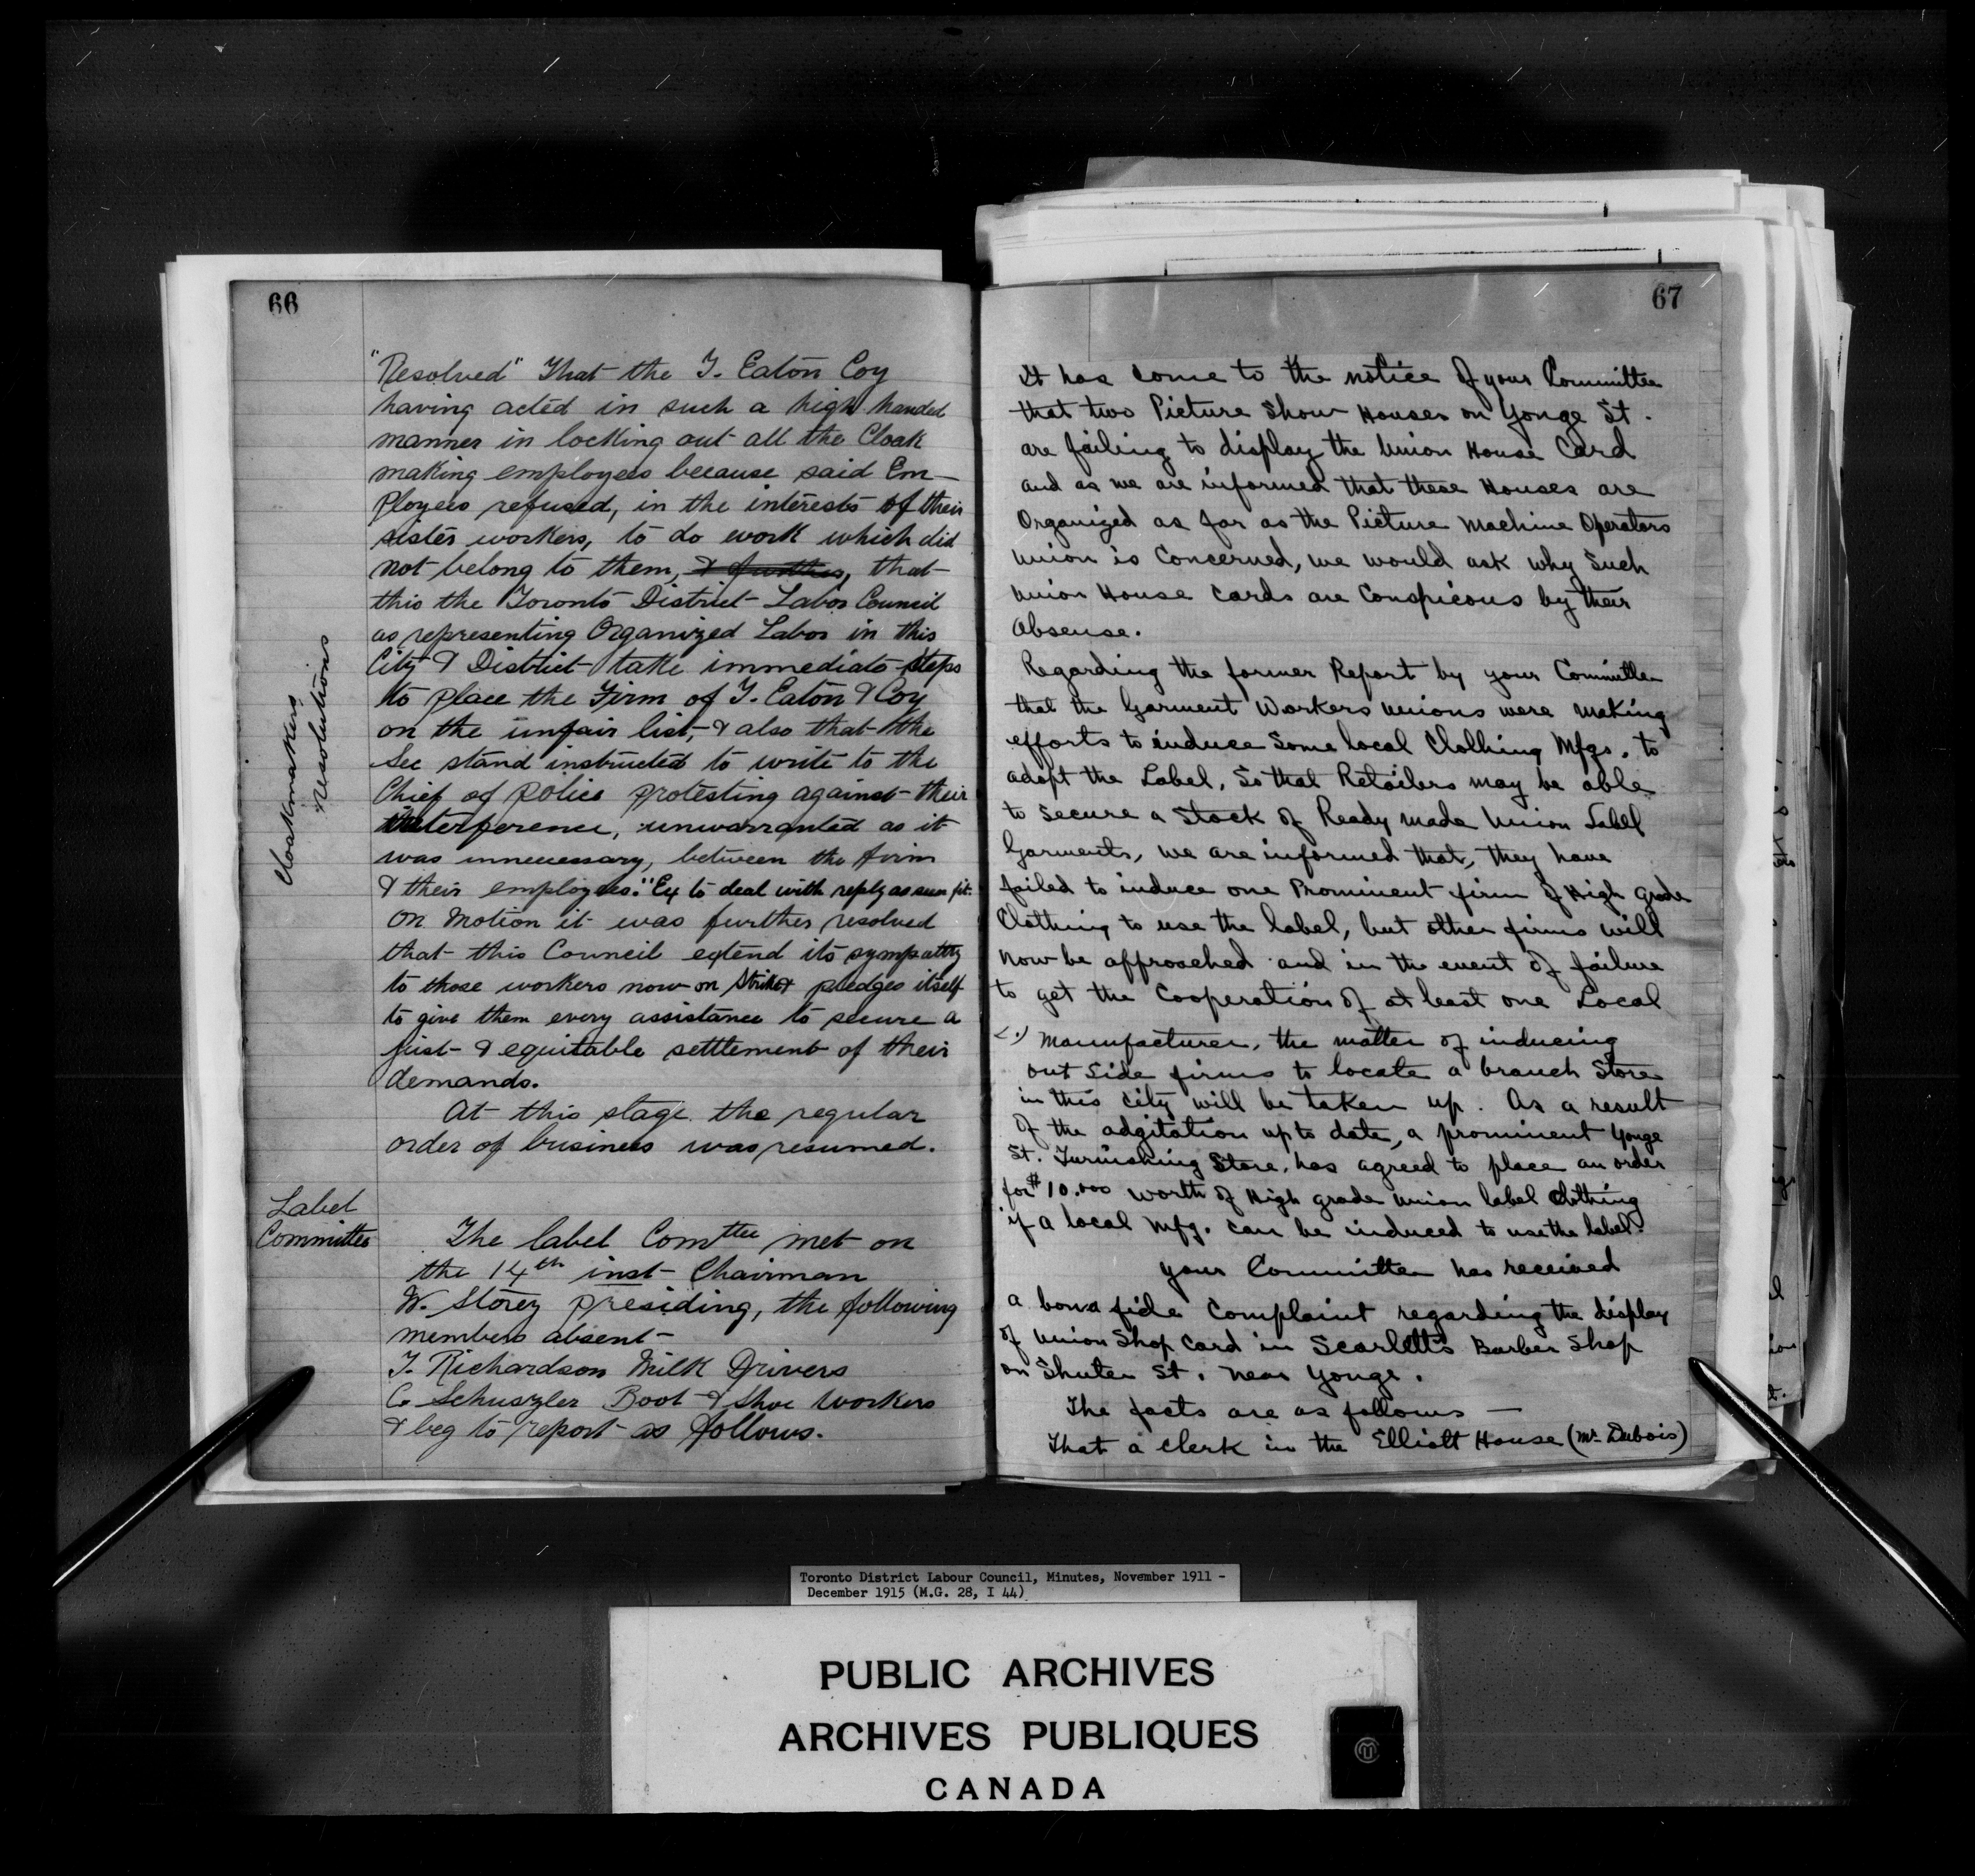 66
"Resolved" That the T. Eaton Coy
having acted in such a high handed
manner in locking out all the Cloak
making employees because said Em-
ployees refused, in the interests of their
sister workers, to do work which did
not belong to them, & further, that
this the Toronto District Labor Council
as representing Organized Labor in this
City & District take immediate steps
to place the Firm of T. Eaton & Coy
on the unfair list, & also that the
Sec stand instructed to write to the
Chief of police protesting against their
interference, unwarranted as it
was unnecessary, between the firm
& their employees." Ex to deal with reply as seen fit.
On motion it was further resolved
that this Council extend its sympathy
to those workers now on Strike & pledges itself
to give them every assistance to secure a
just & equitable setttlement of their
demands.
At this stage the regular
order of business was resumed.
Cloakmakers
Resolutions
Label
Committee
The label Comttee met on
the 14th inst Chairman
W. Storey presiding, the following
members absent
T. Richardson Milk Drivers
C. Schuszler Boot & Shoe Workers
& beg to report as follows.
67
It has come to the notice of your Committee
that two Picture Show Houses on Yonge St.
are failing to display the Union House Card
and as we are informed that these Houses are
Organized as far as the Picture Machine Operators
Union is Concerned, we would ask why Such
Union House Cards are Conspicous by their
absense.
Regarding the former Report by your Committee
that the Garment Workers Unions were making
efforts to induce Some local Clothing Mfgs. to
adopt the Label, So that Retailers may be able
to Secure a Stock of Ready made Union Label
Garments, we are informed that, they have
failed to induce one Prominent firm of High grade
Clothing to use the label, but other firms will
now be approached and in the event of failure
to get the Cooperation of at least one Local
2.) Manufacturer, the matter of inducing
out Side firms to locate a branch Store
in this City will be taken up. As a result
of the adgitation up to date, a prominent Yonge
St. Furnishing Store, has agreed to place an order
for $10.000 worth of High grade Union label Clothing
if a local Mfg. can be induced to use the label.
Your Committee has received
a bona fide Complaint regarding the display
of Union Shop Card in Scarletts Barber Shop
on Shuter St. near Yonge.
The facts are as follows —
That a Clerk in the Elliott House (Mr. Dubois)
Toronto District Labour Council, Minutes, November 1911 -
December 1915 (M.G. 28, I 44)
PUBLIC ARCHIVES
ARCHIVES PUBLIQUES
CANADA